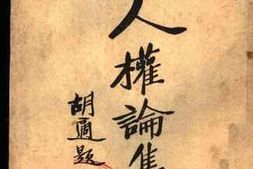 人權論集
胡適題